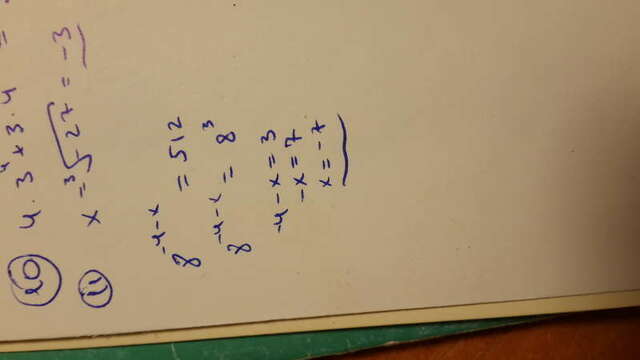 10 4.3⁴ × 3.4 =
11 x = ³√-27 = -3
8^-4-x = 512
8^-4-x = 8³
-4-x = 3
-x = 7
x = -7